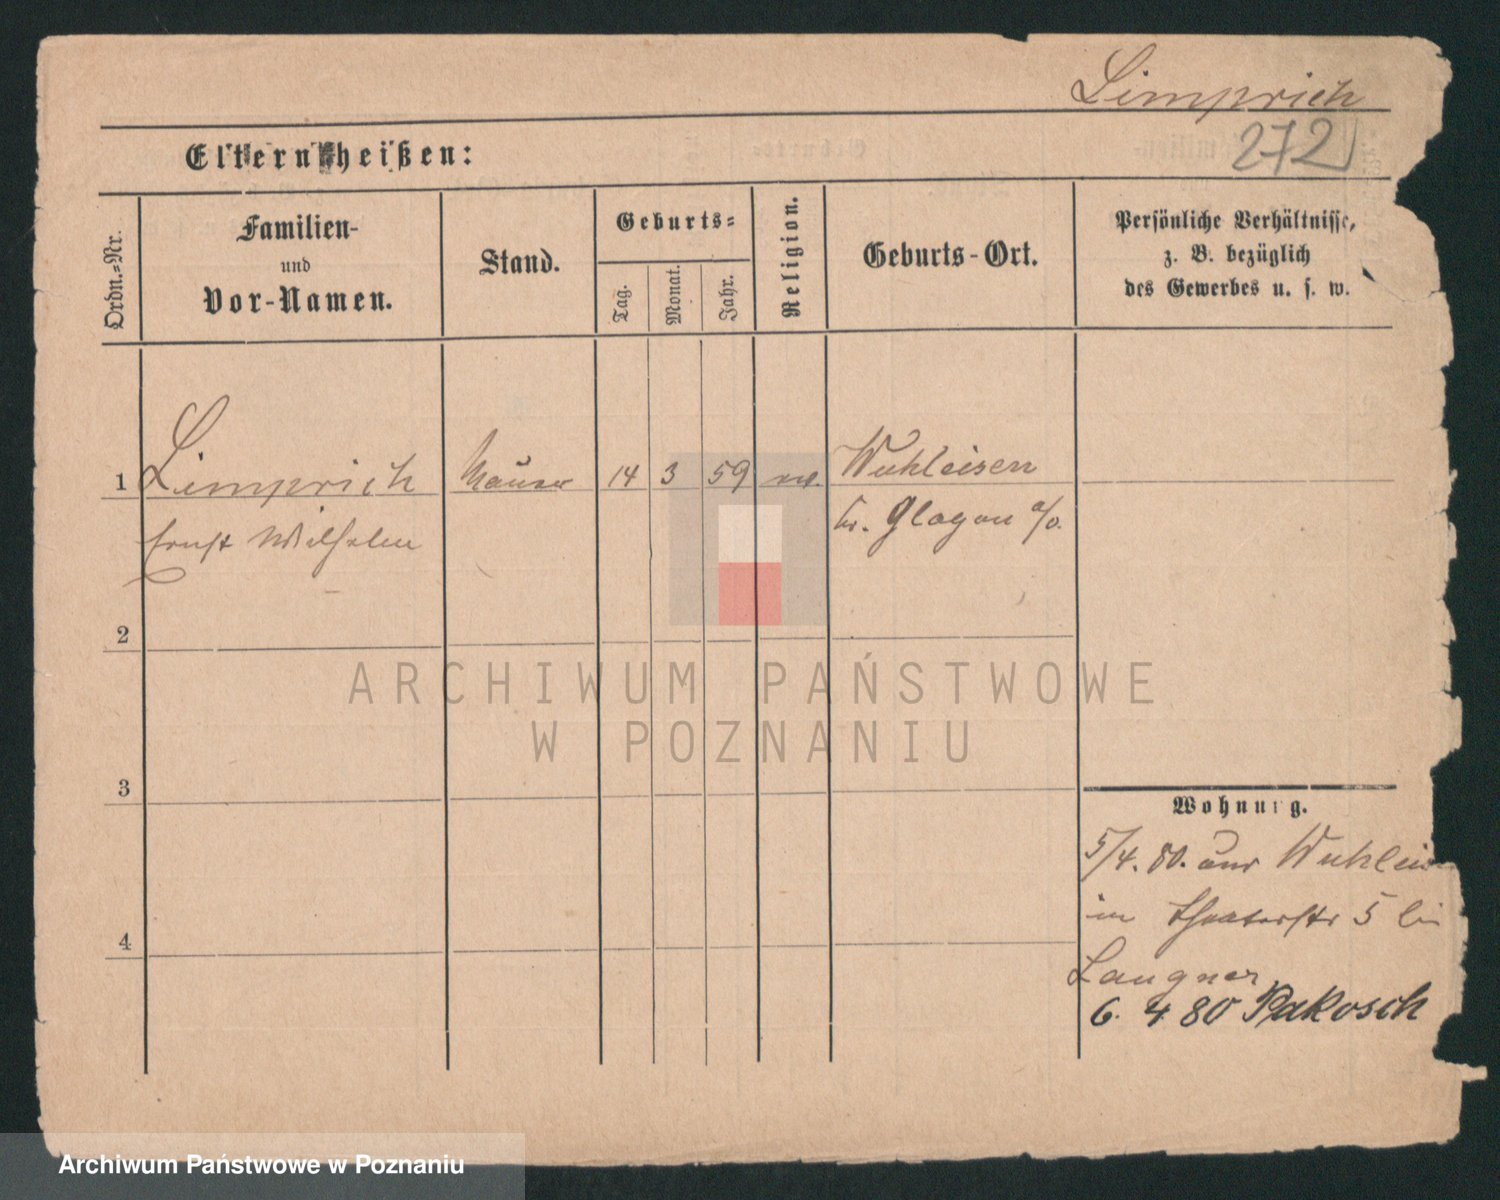 Limprich
272
Eltern heißen:
Ordn.-Nr.
Familien-
und
Vor-Namen.
Stand.
Geburts-
Tag.
Monat.
Jahr.
Religion.
Geburts-Ort.
Persönliche Verhältnisse,
z. B. bezüglich
des Gewerbes u. s. w.
1 Limprich Maurer 14 3 59 Wuhleisen
Ernst Wilhelm Kr. Glogau a/O.
2
3
4
ARCHIWUM PAŃSTWOWE
W POZNANIU
Wohnung.
5/4. 80. aus Wuhleisen
in Theaterstr 5 bei
Langner
6. 4 80 Pakosch
Archiwum Państwowe w Poznaniu